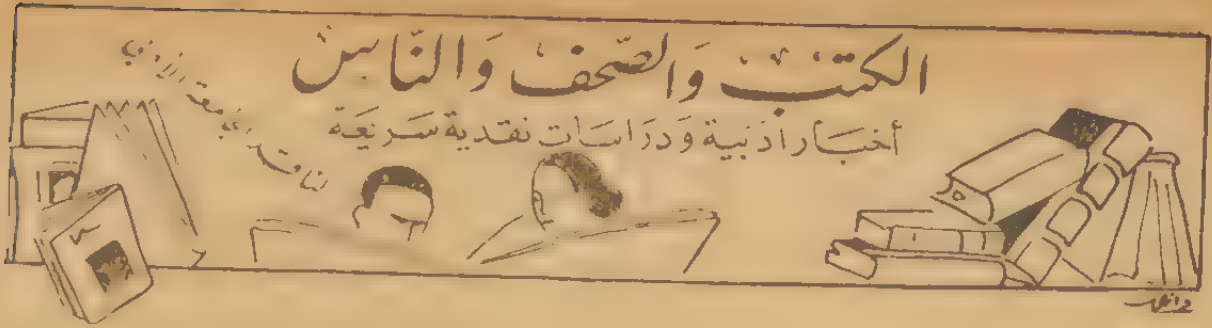 الكتب وَالصّحف وَالنّاس
أخبار أدبية وَدرَاسَات نقدية سَريعَة